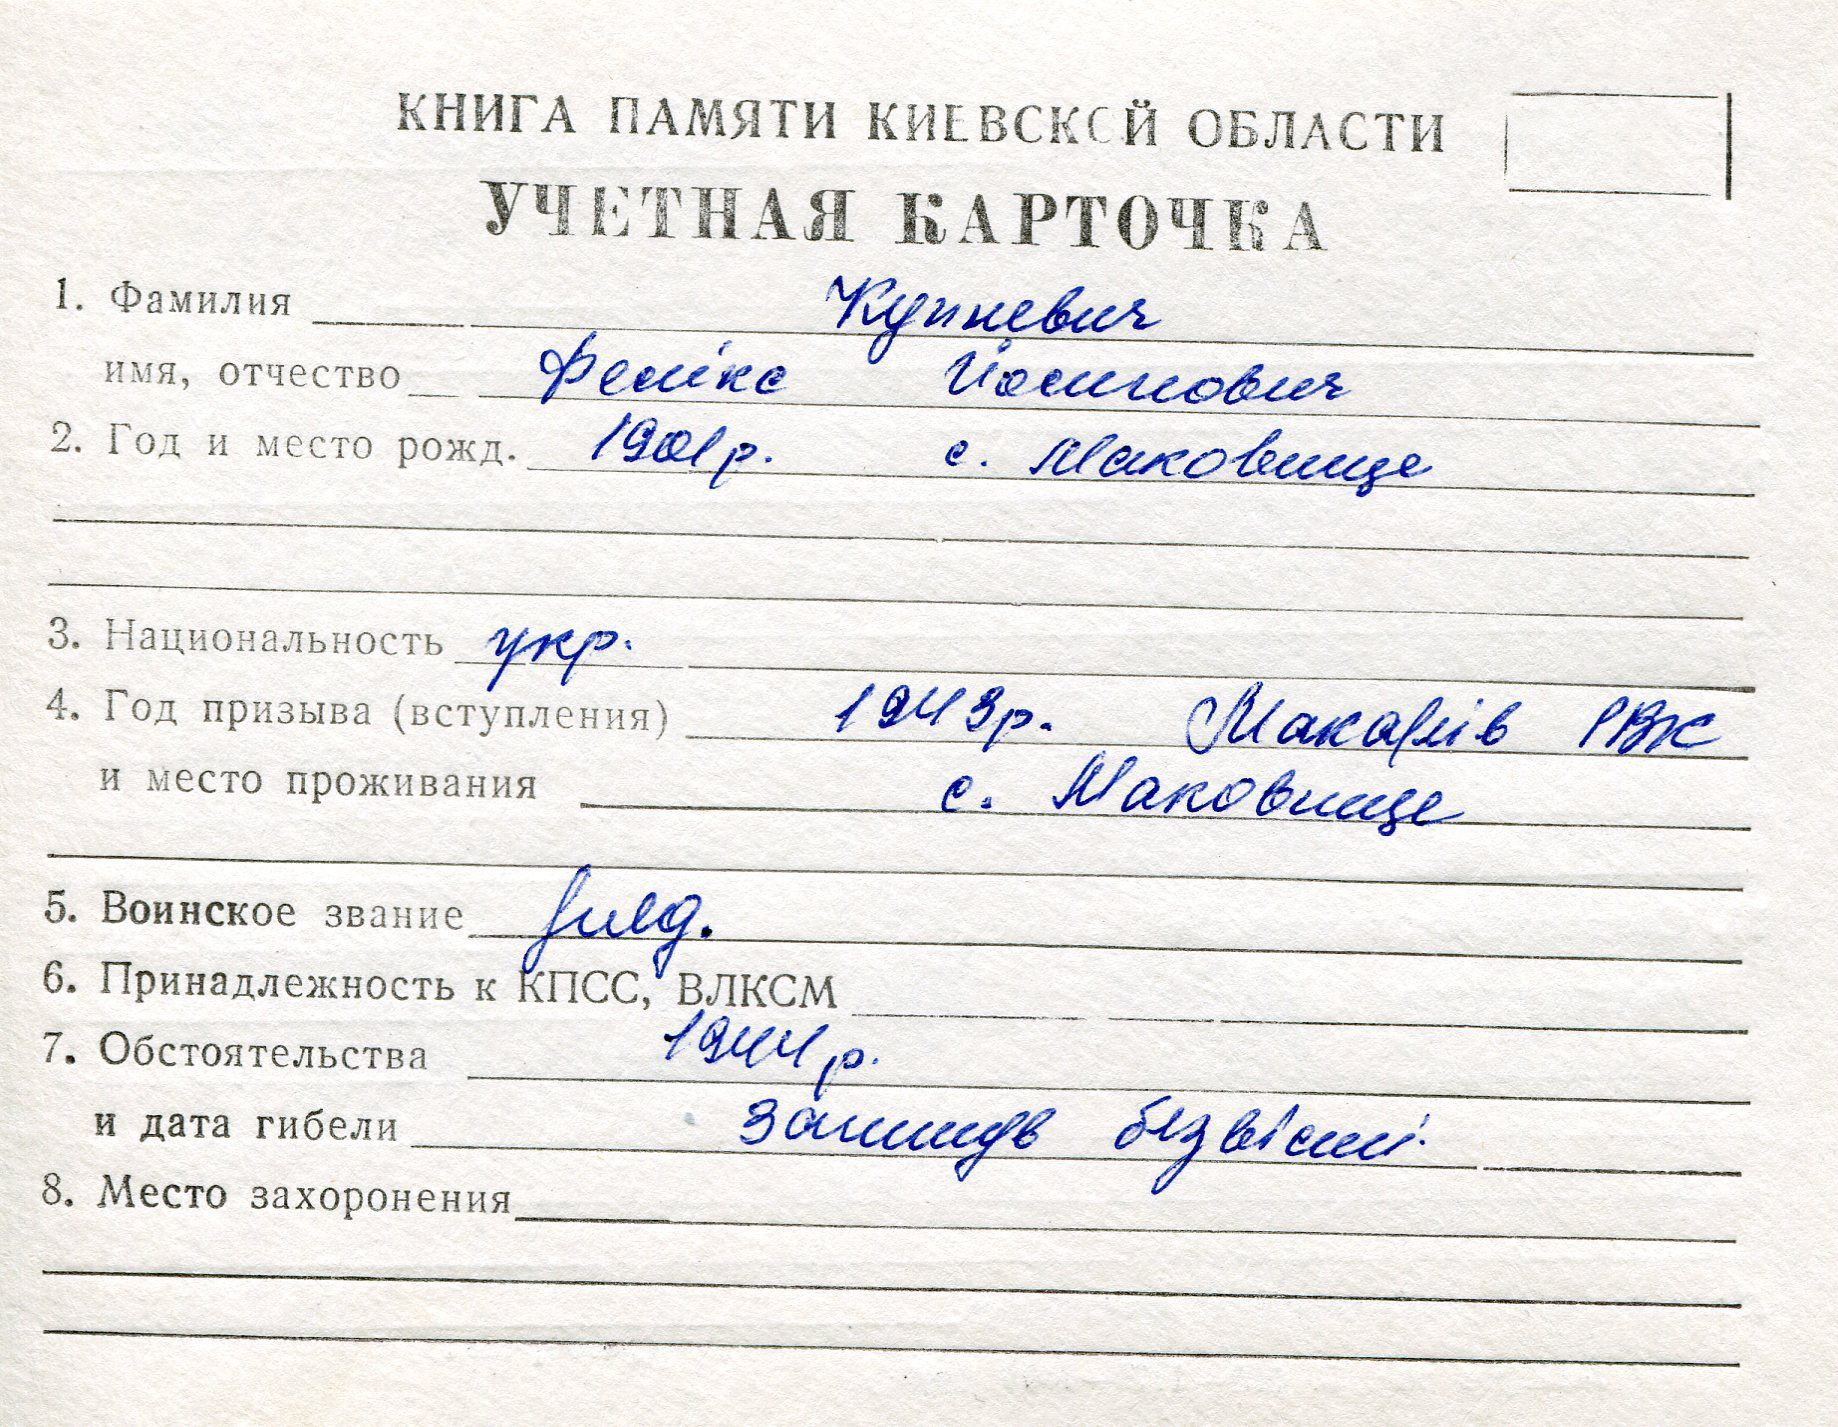 КНИГА ПАМЯТИ КИЕВСКОЙ ОБЛАСТИ
УЧЕТНАЯ КАРТОЧКА
1. Фамилия Купневич
имя, отчество Фелікс Йосипович
2. Год и место рожд. 1901 р. с. Маковище
3. Национальность укр.
4. Год призыва (вступления) 1943 р. Макарів РВК
и место проживания с. Маковище
5. Воинское звание
6. Принадлежность к КПСС, ВЛКСМ
7. Обстоятельства 1944 р.
и дата гибели безвісті
8. Место захоронения